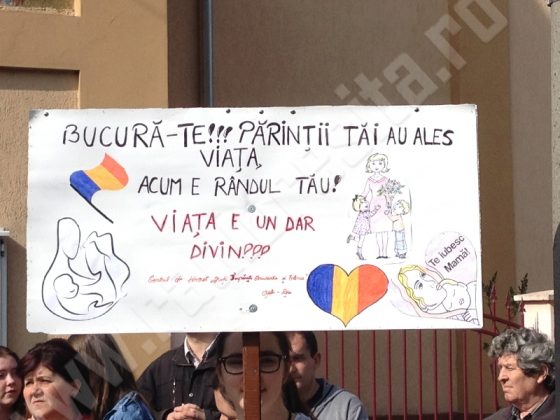 BUCURĂ-TE!!! PĂRINȚII TĂI AU ALES
VIAȚA,
ACUM E RÂNDUL TĂU!
VIAȚA E UN DAR
DIVIN!!!
Te iubesc
Mamă!